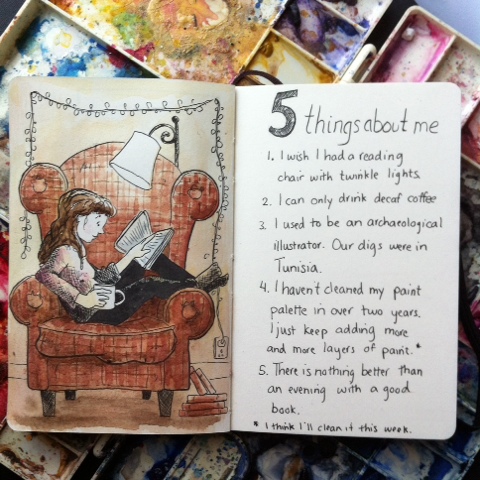 5 things about me
1. I wish I had a reading
chair with twinkle lights.
2. I can only drink decaf coffee
3. I used to be an archaeological
illustrator. Our digs were in
Tunisia.
4. I haven't cleaned my paint
palette in over two years.
I just keep adding more
and more layers of paint.*
5. There is nothing better than
an evening with a good
book.
* I think I'll clean it this week.